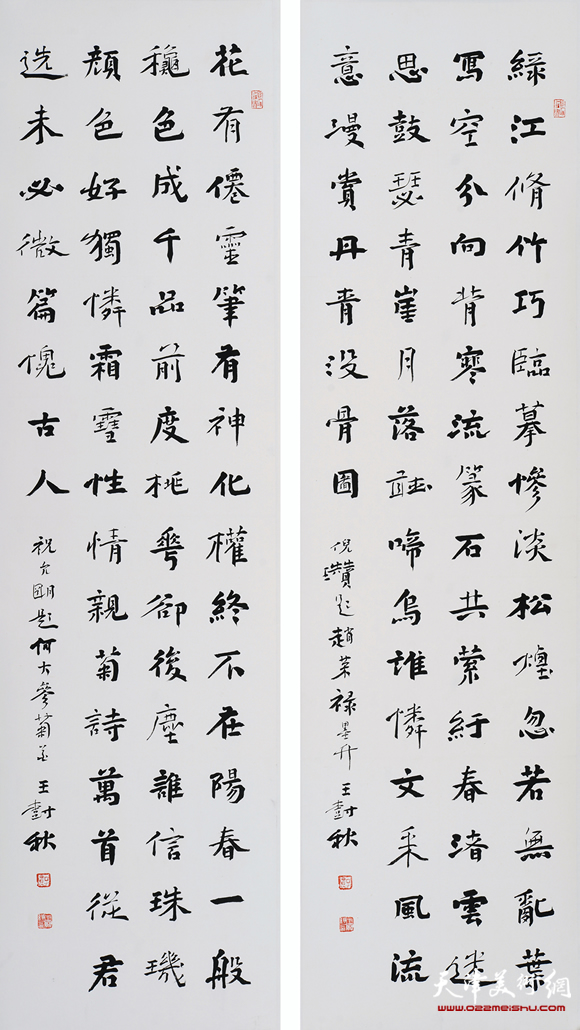 綠江脩竹巧臨摹慘淡松煙忽若無亂葉
寫空分向背寒流篆石共縈紆春渚雲迷
思鼓瑟青崖月落聽啼烏誰憐文采風流
意漫賞丹青没骨圖
倪瓚題趙榮禄墨竹 王樹秋
花有僊靈筆有神化權終不在陽春一般
龝色成千品前度桃華卻後塵誰信珠璣
顏色好獨憐霜雪性情親菊詩萬首從君
选未必微篇愧古人
祝允明題何大參菊 王樹秋
天津美術網
www.022meishu.com